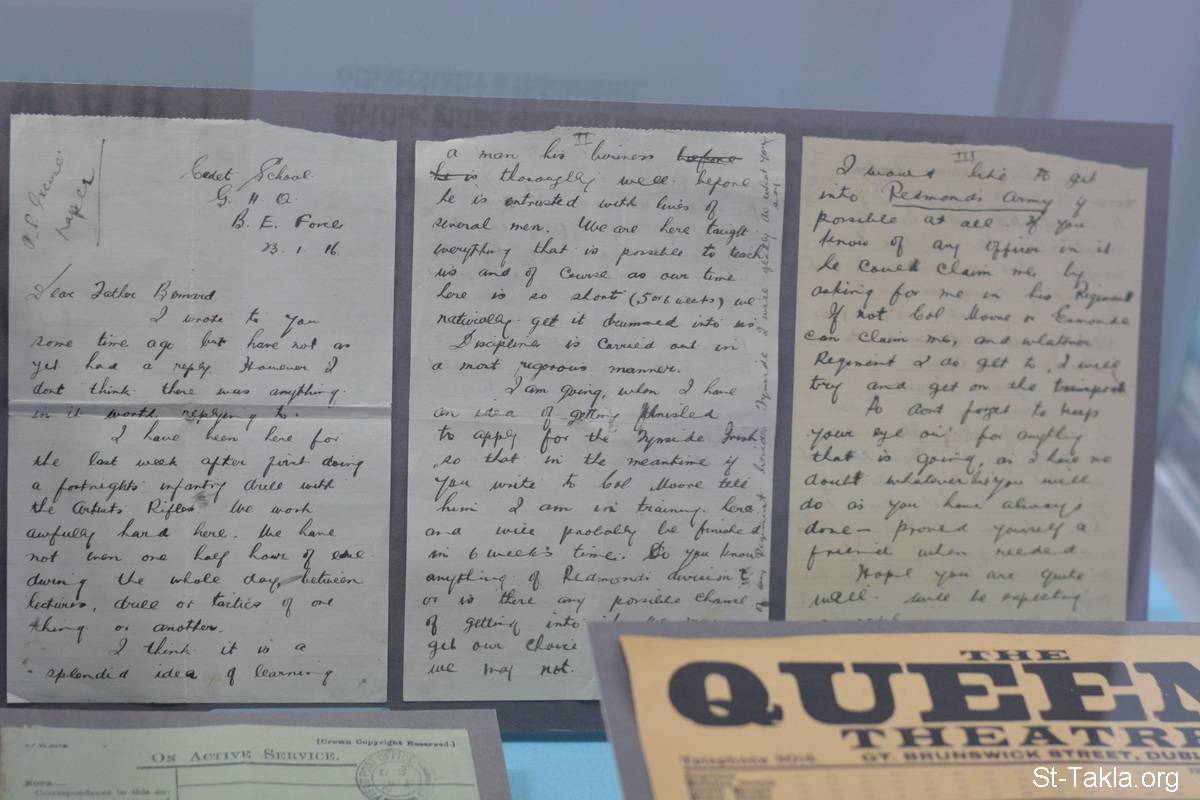 Cadet School
G. H Q.
B. E. Force
23. 1. 16.
Dear Father Bernard
I wrote to you
some time ago but have not as
yet had a reply. However I
dont think there was anything
in it worth replying to.
I have been here for
the last week after first doing
a fortnights infantry drill with
the Artists Rifles. We work
awfully hard here. We have
not even one half hour of ease
during the whole day, between
lectures, drill or tactics of one
thing or another.
I think it is a
splendid idea of learning
II
a man his business before
he is thoroughly well before
he is entrusted with lives of
several men. We are here taught
everything that is possible to teach
us and of course as our time
here is so short (5 or 6 weeks) we
naturally get it drummed into us.
Discipline is carried out in
a most rigorous manner.
I am going, when I have
an idea of getting finished
to apply for the Tyneside Irish
so that in the meantime if
you write to Col Moore tell
him I am in training here
and will probably be finished
in 6 weeks time. Do you know
anything of Redmonds division?
or is there any possible chance
of getting into
get our choice
we may not.
III
I would like to get
into Redmonds Army if
possible at all. If you
know of any officer in it
he could claim me, by
asking for me in his Regiment
If not Col Moore or Esmonde
can claim me, and whatever
Regiment I do get to, I will
try and get on the transport
dont forget to keep
your eye out for anything
that is going, as I have no
doubt whatever but you will
do as you have always
done — proved yourself a
friend when needed.
Hope you are quite
well. Will be expecting
ON ACTIVE SERVICE.
[Crown Copyright Reserved.]
NOTE
Correspondence in this en-
THE
QUEEN
THEATRE
GT. BRUNSWICK STREET, DUBL
Telephone
St-Takla.org